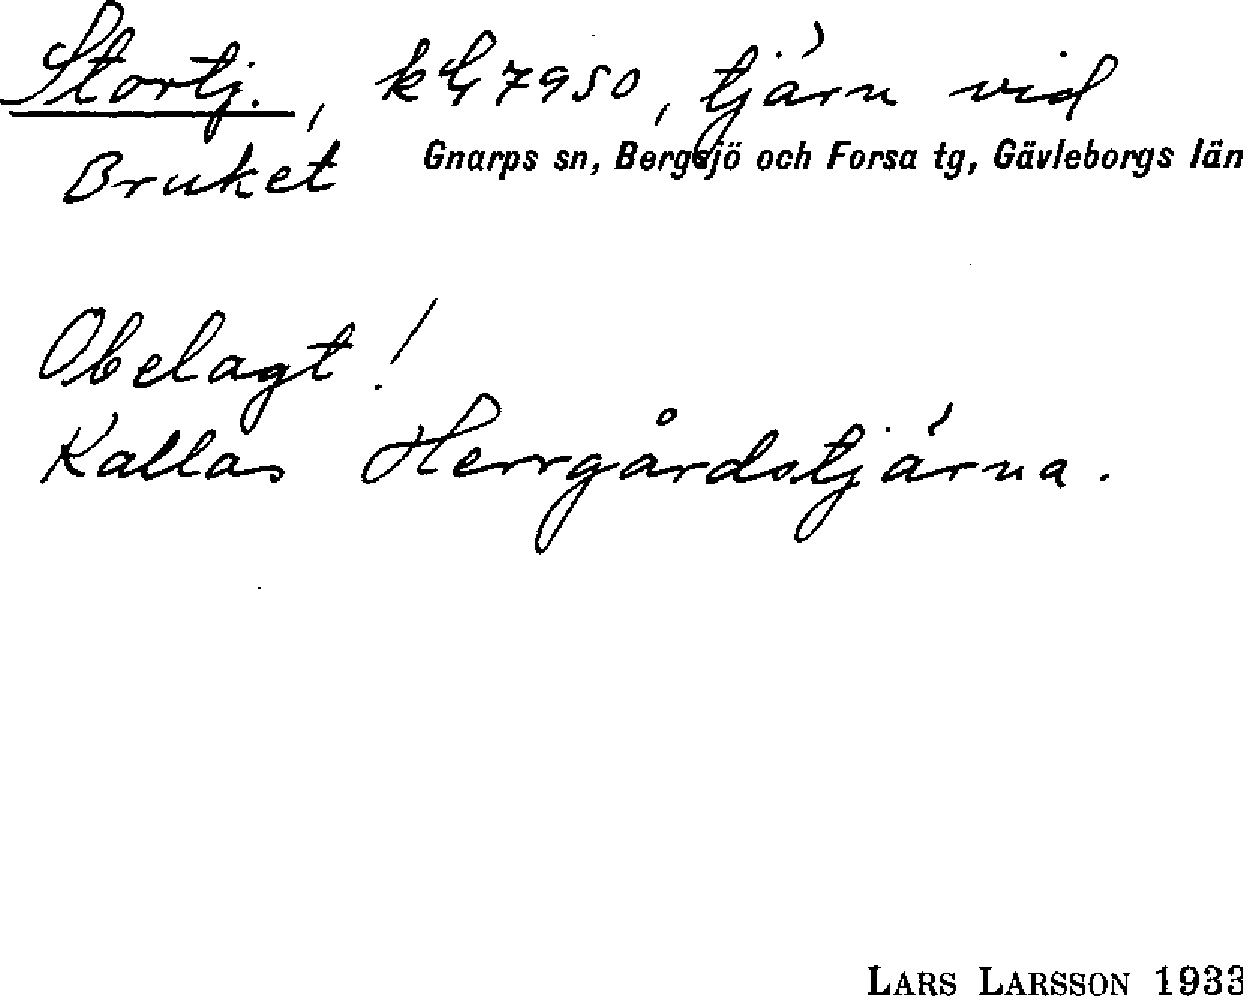 Stortj., kG 7950, tjärn vid
Bruket
Gnarps sn, Bergsjö och Forsa tg, Gävleborgs län
Obelagt!
Kallas Herrgårdstjärna.
LARS LARSSON 1933